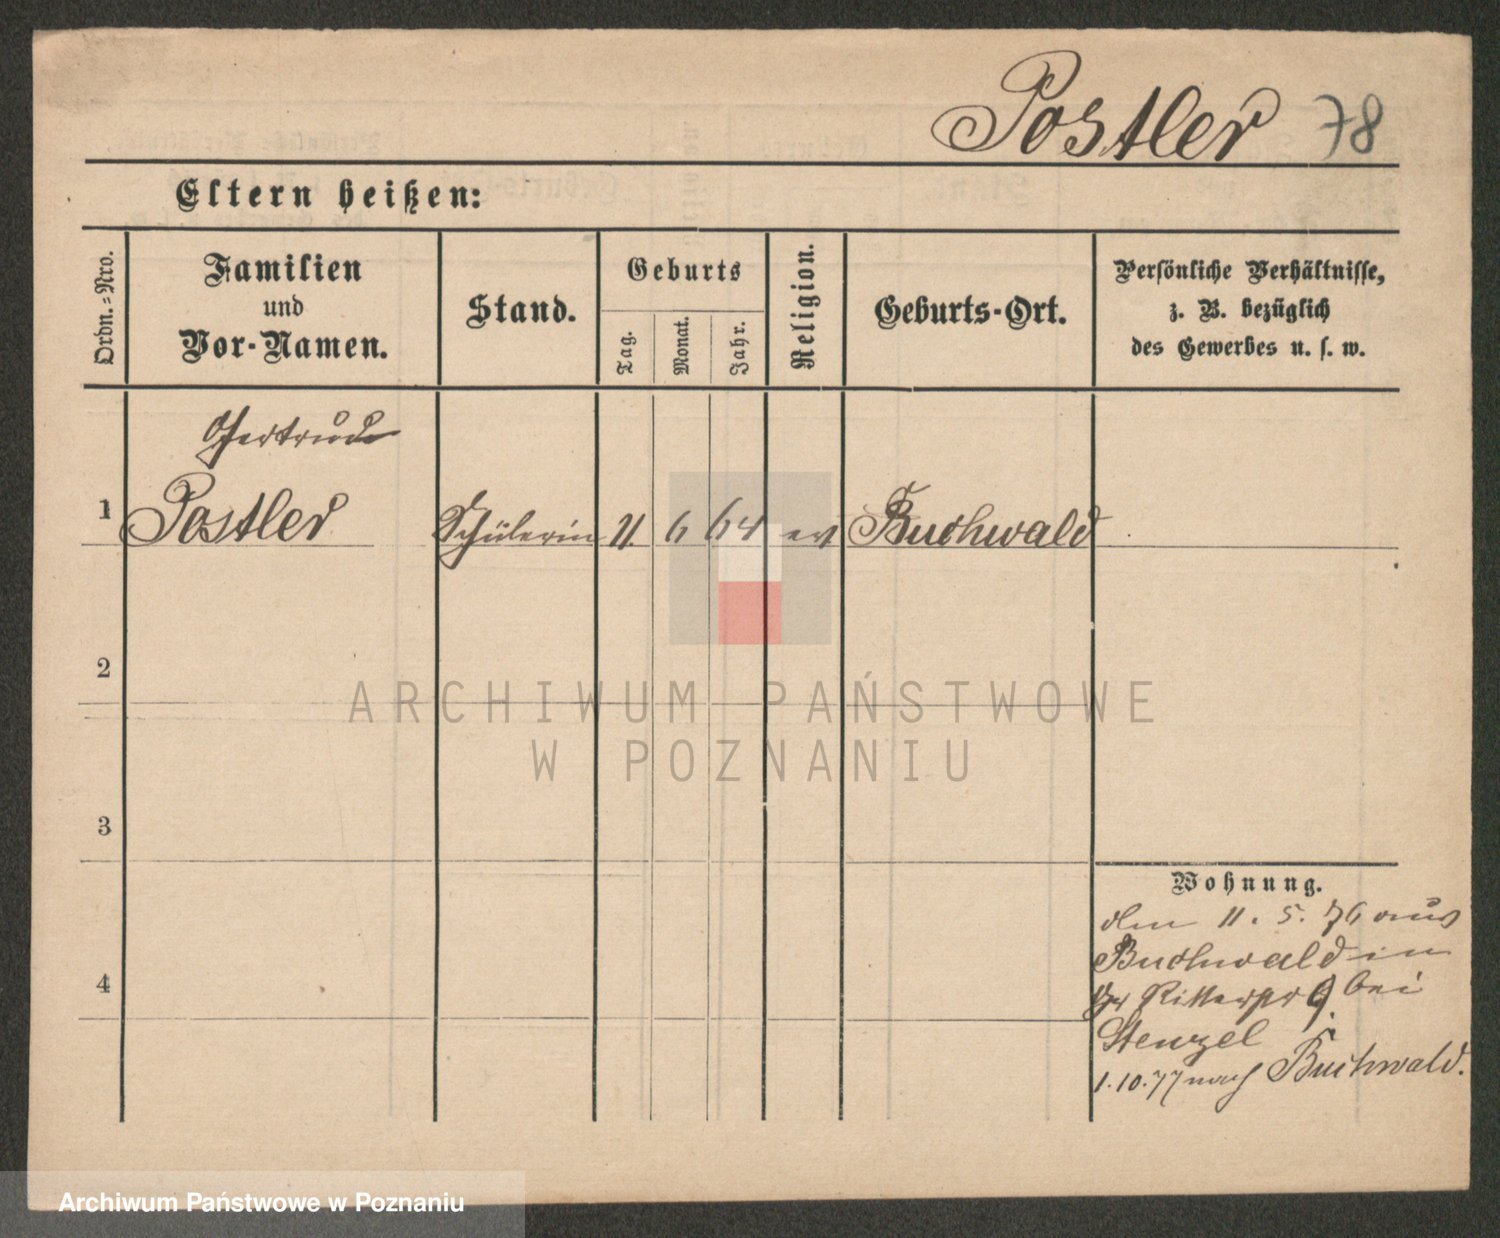 Postler 78
Eltern heißen:
Ordn.=Nro.
Familien
und
Vor-Namen.
Stand.
Geburts
Tag.
Monat.
Jahr.
Religion.
Geburts-Ort.
Persönliche Verhältnisse,
z. B. bezüglich
des Gewerbes u. s. w.
Gertrude
1 Postler Schülerin 11. 6 64 ev Buchwald
2
ARCHIWUM PAŃSTWOWE
W POZNANIU
3
Wohnung.
den 11. 5. 76 aus
Buchwald in
4
Gr Ritterstr 9. bei
Stenzel
1.10.77 nach Buchwald.
Archiwum Państwowe w Poznaniu